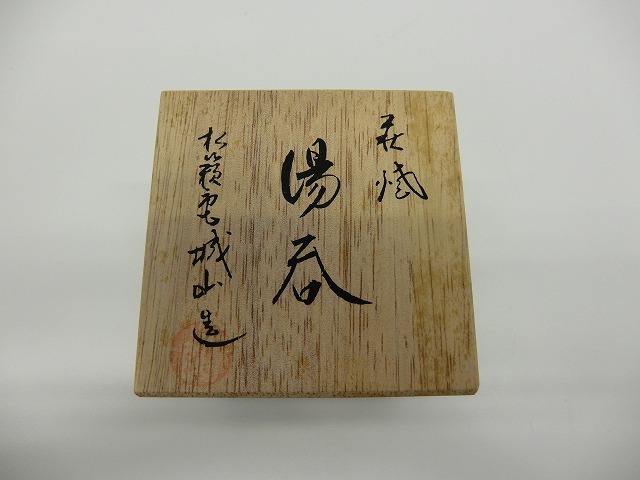 萩焼
湯呑
松籟庵城山造